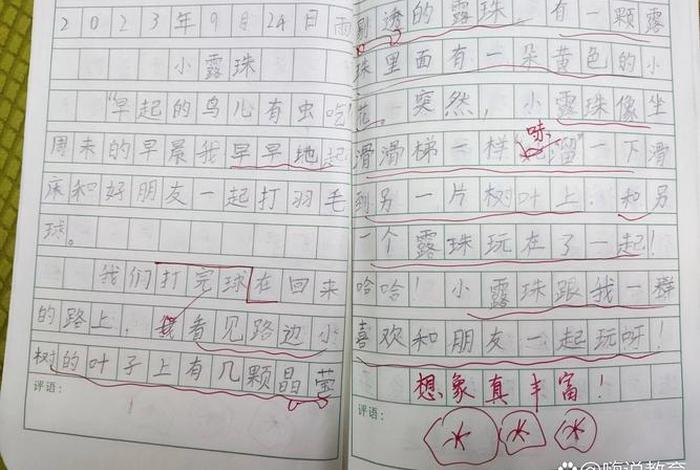 2023年9月24日 雨
小露珠
“早起的鸟儿有虫吃!”
周末的早晨我早早地起
床和好朋友一起打羽毛
球。
我们打完球在回来
的路上,我看见路边小
树的叶子上有几颗晶莹
评语:
剔透的露珠。有一颗露
珠里面有一朵黄色的小
花。突然,小露珠像坐
哧
滑滑梯一样“溜”一下滑
到另一片树叶上,和另
一个露珠玩在了一起!
哈哈!小露珠跟我一样
喜欢和朋友一起玩呀!
想象真丰富!
评语:
嗨说教育